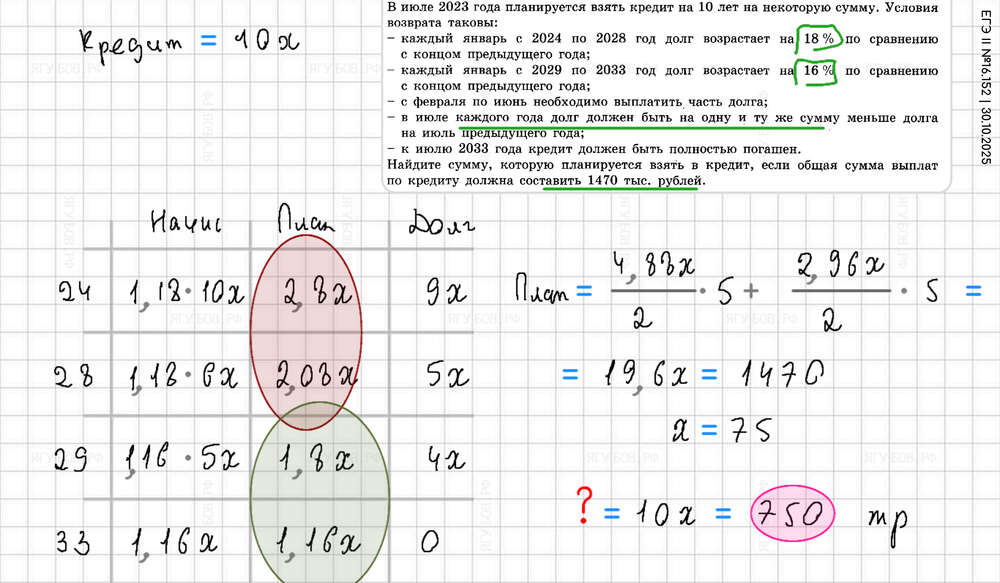 В июле 2023 года планируется взять кредит на 10 лет на некоторую сумму. Условия
возврата таковы:
– каждый январь с 2024 по 2028 год долг возрастает на 18 % по сравнению
с концом предыдущего года;
– каждый январь с 2029 по 2033 год долг возрастает на 16 % по сравнению
с концом предыдущего года;
– с февраля по июнь необходимо выплатить часть долга;
– в июле каждого года долг должен быть на одну и ту же сумму меньше долга
на июль предыдущего года;
– к июлю 2033 года кредит должен быть полностью погашен.
Найдите сумму, которую планируется взять в кредит, если общая сумма выплат
по кредиту должна составить 1470 тыс. рублей.
ЕГЭ II №16.152 | 30.10.2025
Кредит = 10x
Начис Плат Долг
24 1,18·10x 2,8x 9x
28 1,18·6x 2,08x 5x
29 1,16·5x 1,8x 4x
33 1,16x 1,16x 0
Плат = 4,88x/2 · 5 + 2,96x/2 · 5 =
= 19,6x = 1470
x = 75
? = 10x = 750 тр
ЯГУБОВ.РФ